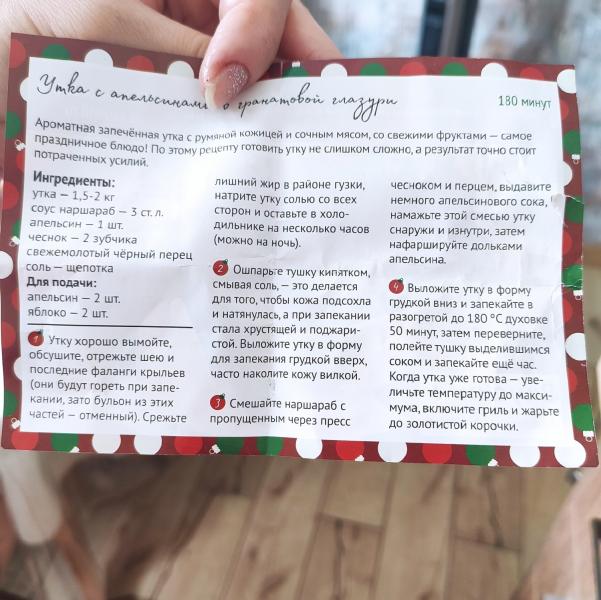 Утка с апельсинами в гранатовой глазури
180 минут
Ароматная запечённая утка с румяной кожицей и сочным мясом, со свежими фруктами — самое
праздничное блюдо! По этому рецепту готовить утку не слишком сложно, а результат точно стоит
потраченных усилий.
Ингредиенты:
утка — 1,5-2 кг
соус наршараб — 3 ст. л.
апельсин — 1 шт.
чеснок — 2 зубчика
свежемолотый чёрный перец
соль — щепотка
Для подачи:
апельсин — 2 шт.
яблоко — 2 шт.
1 Утку хорошо вымойте,
обсушите, отрежьте шею и
последние фаланги крыльев
(они будут гореть при запе-
кании, зато бульон из этих
частей — отменный). Срежьте
лишний жир в районе гузки,
натрите утку солью со всех
сторон и оставьте в холо-
дильнике на несколько часов
(можно на ночь).
2 Ошпарьте тушку кипятком,
смывая соль, — это делается
для того, чтобы кожа подсохла
и натянулась, а при запекании
стала хрустящей и поджари-
стой. Выложите утку в форму
для запекания грудкой вверх,
часто наколите кожу вилкой.
3 Смешайте наршараб с
пропущенным через пресс
чесноком и перцем, выдавите
немного апельсинового сока,
намажьте этой смесью утку
снаружи и изнутри, затем
нафаршируйте дольками
апельсина.
4 Выложите утку в форму
грудкой вниз и запекайте в
разогретой до 180 °С духовке
50 минут, затем переверните,
полейте тушку выделившимся
соком и запекайте ещё час.
Когда утка уже готова — уве-
личьте температуру до макси-
мума, включите гриль и жарьте
до золотистой корочки.